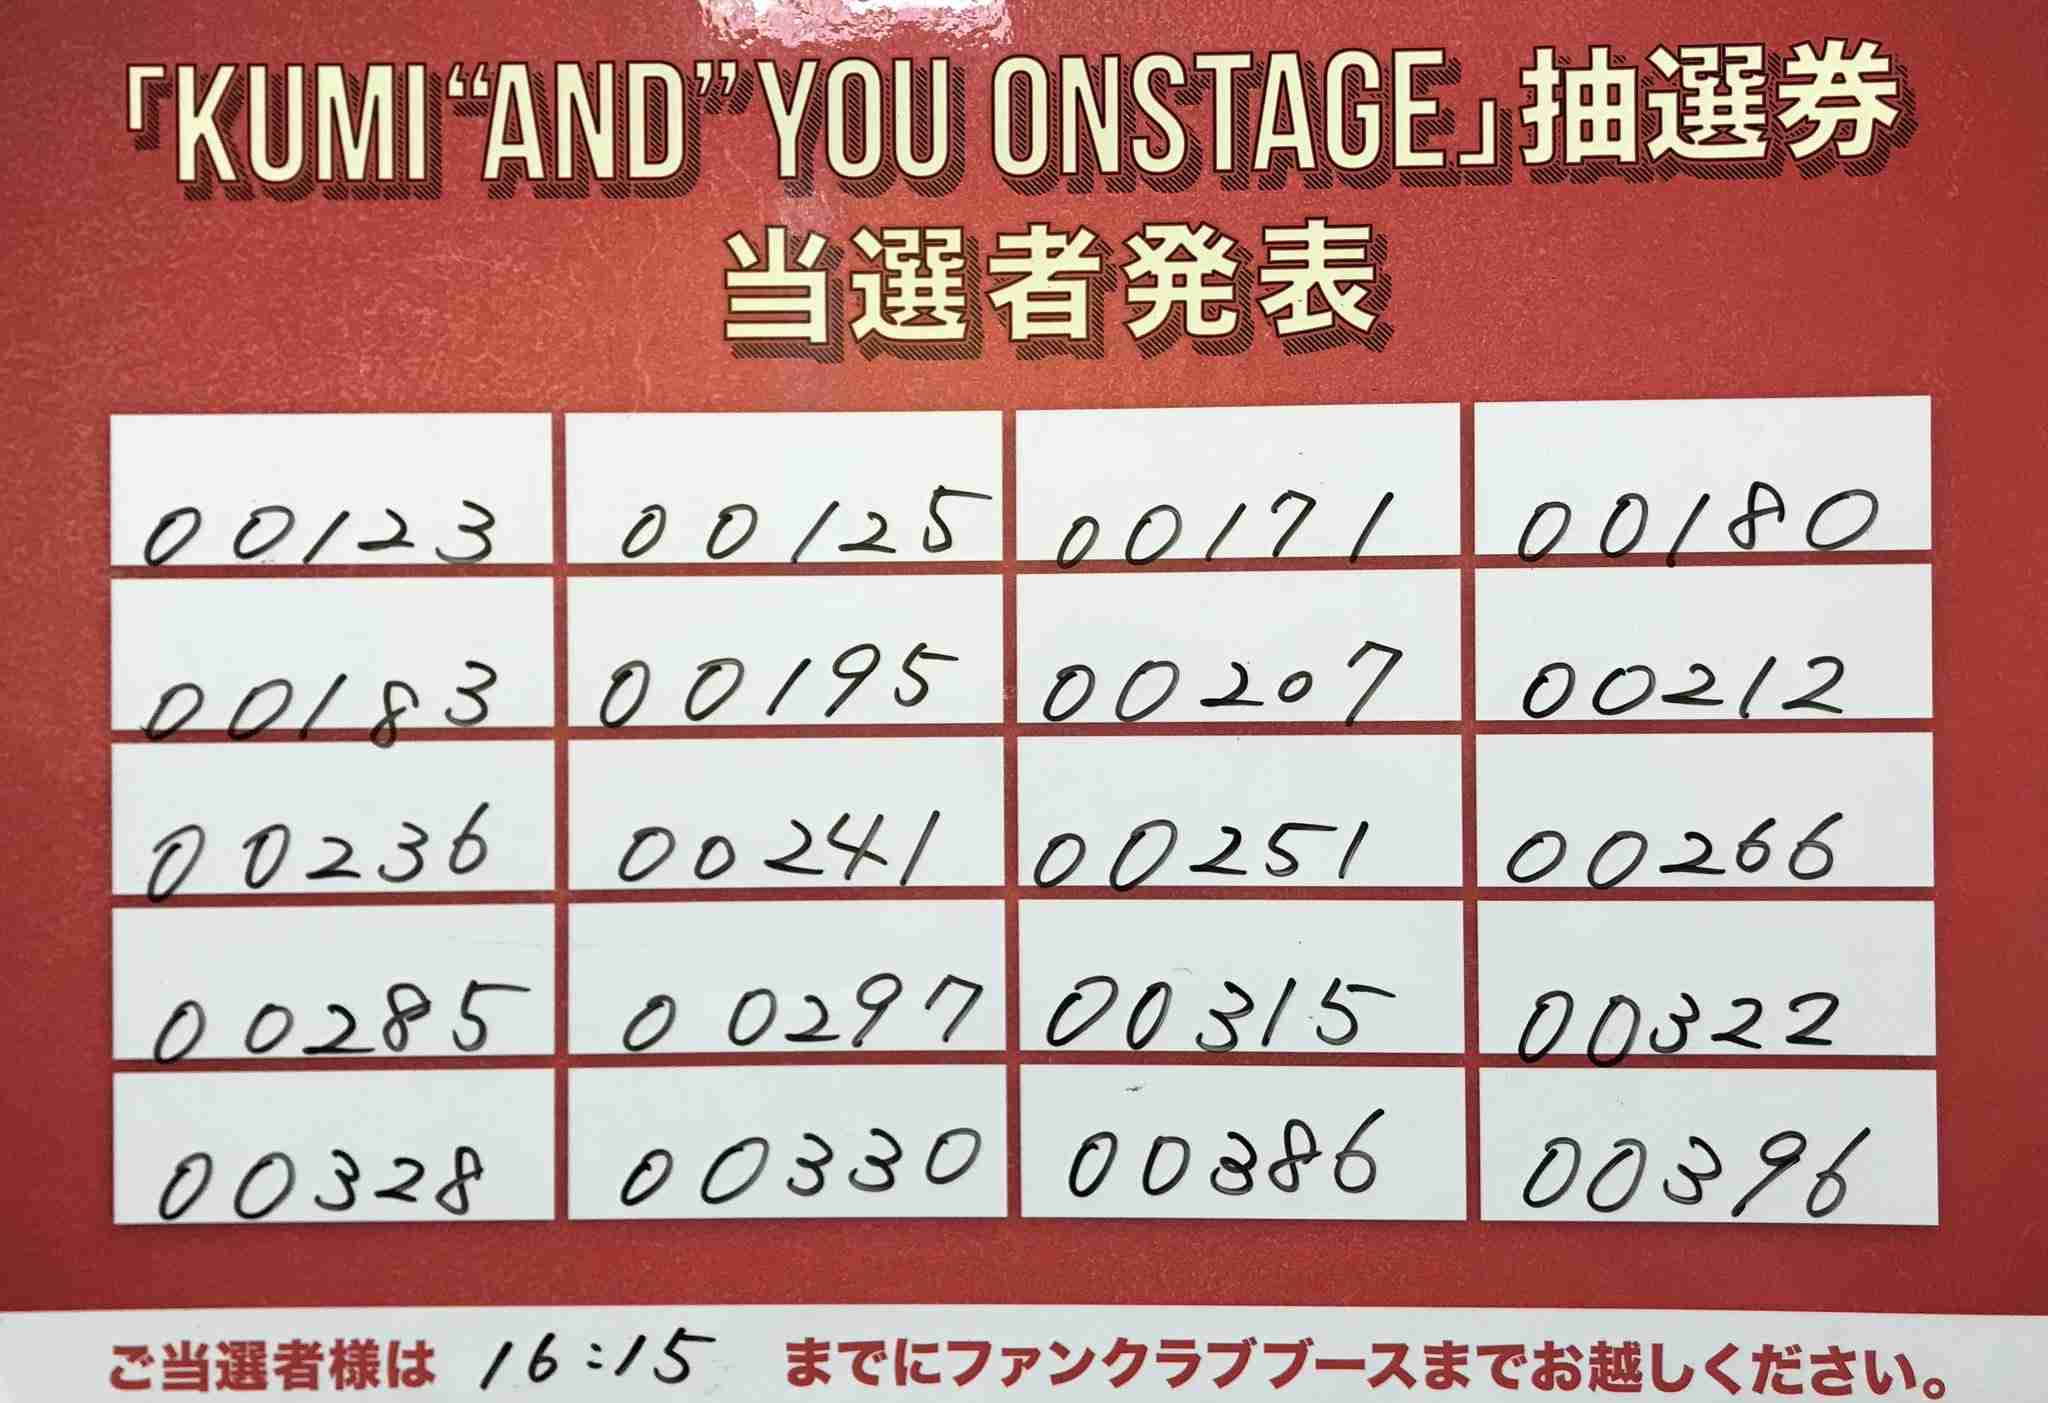 「KUMI “AND” YOU ONSTAGE」抽選券
当選者発表
00123 00125 00171 00180
00183 00195 00207 00212
00236 00241 00251 00266
00285 00297 00315 00322
00328 00330 00386 00396
ご当選者様は 16:15 までにファンクラブブースまでお越しください。